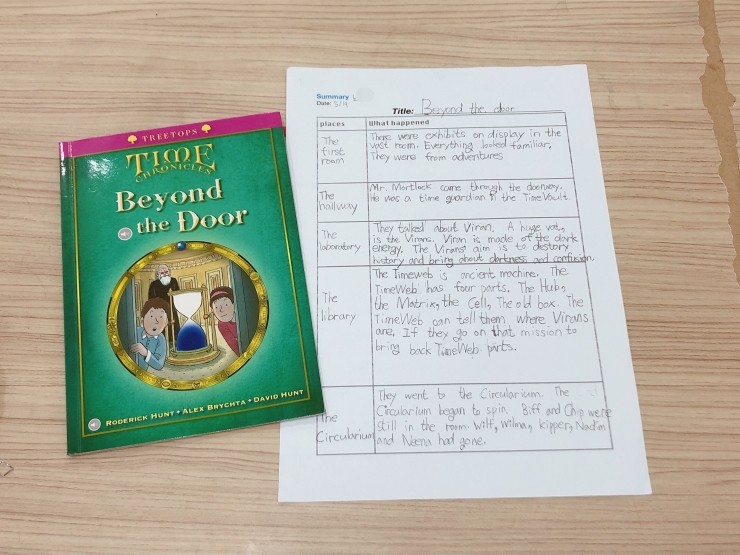 TREETOPS
TIME
CHRONICLES
Beyond
the Door
RODERICK HUNT • ALEX BRYCHTA • DAVID HUNT
Summary
Date: 5/14
Title: Beyond the door
places
What happened
The
first
room
There were exhibits on display in the
vast room. Everything looked familiar,
They were from adventures
The
hallway
Mr. Mortlock came through the doorway.
He was a time guardian in the Time Vault.
The
laboratory
They talked about Viran. A huge vat,
is the Virans. Viran is made of the dark
energy. The Virans' aim is to destory
history and bring about darkness and confusion.
The
library
The Timeweb is ancient machine. The
TimeWeb has four parts. The Hub,
the Matrix, the Cell, The old box. The
TimeWeb can tell them where Virans
are. If they go on that mission to
bring back TimeWeb parts.
The
Circularium
They went to the Circularium. The
Circularium began to spin. Biff and Chip were
still in the room. Wilf, Wilma, kipper, Nadim
and Neena had gone.